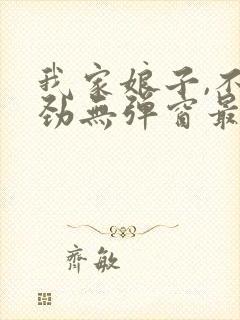 我家娘子,不
劲无弹窗最
齊敏